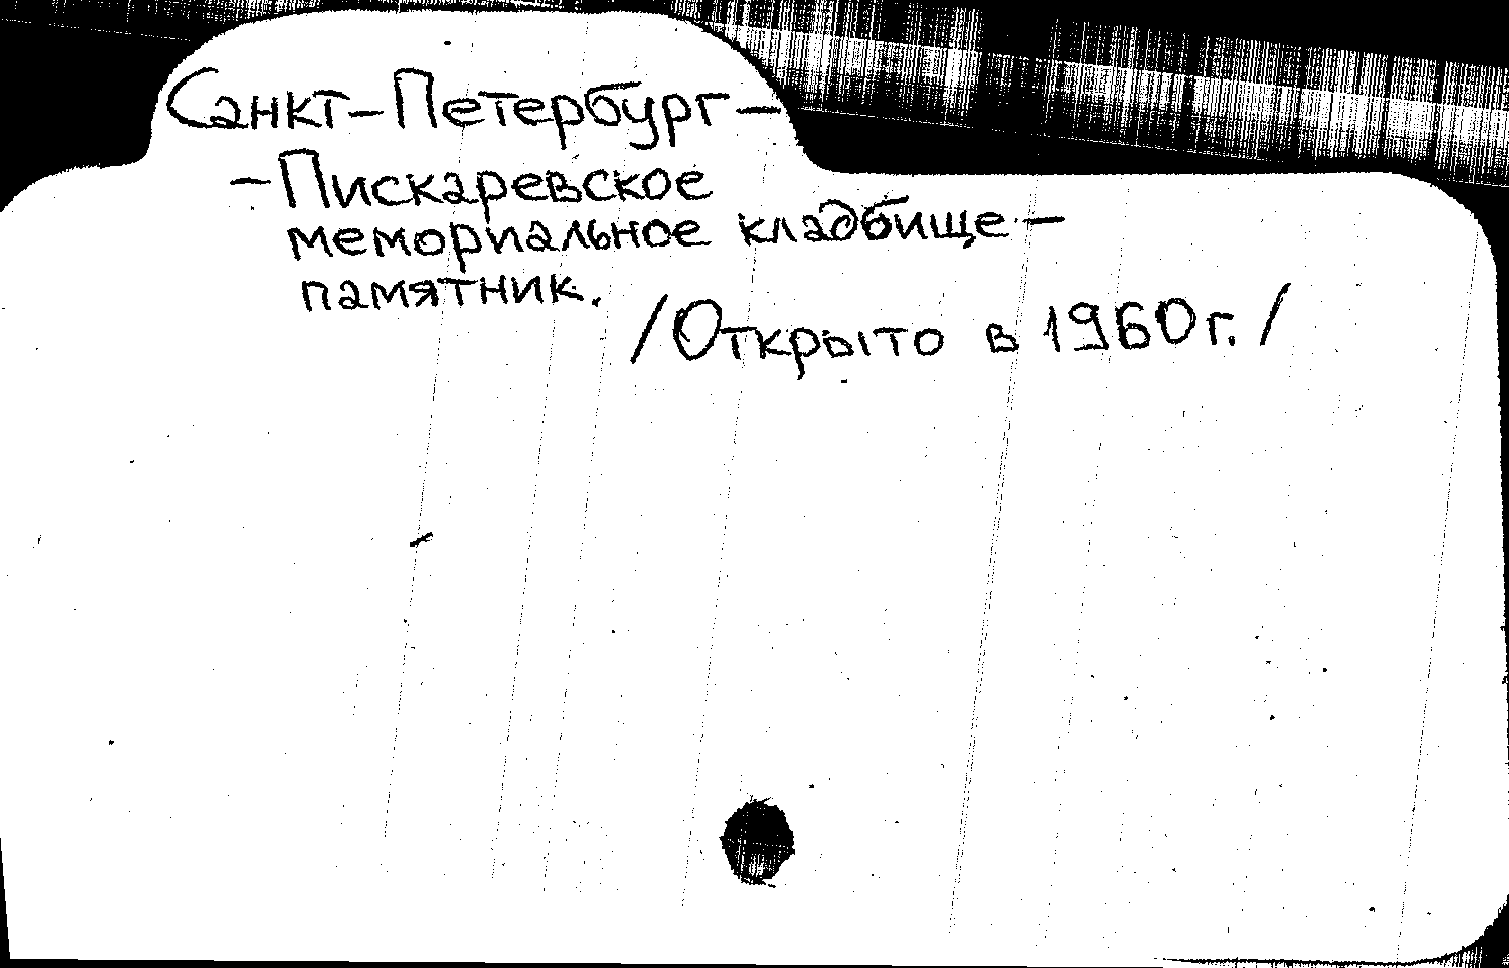 Санкт-Петербург-
-Пискаревское
мемориальное кладбище-
памятник.
/Открыто в 1960г./